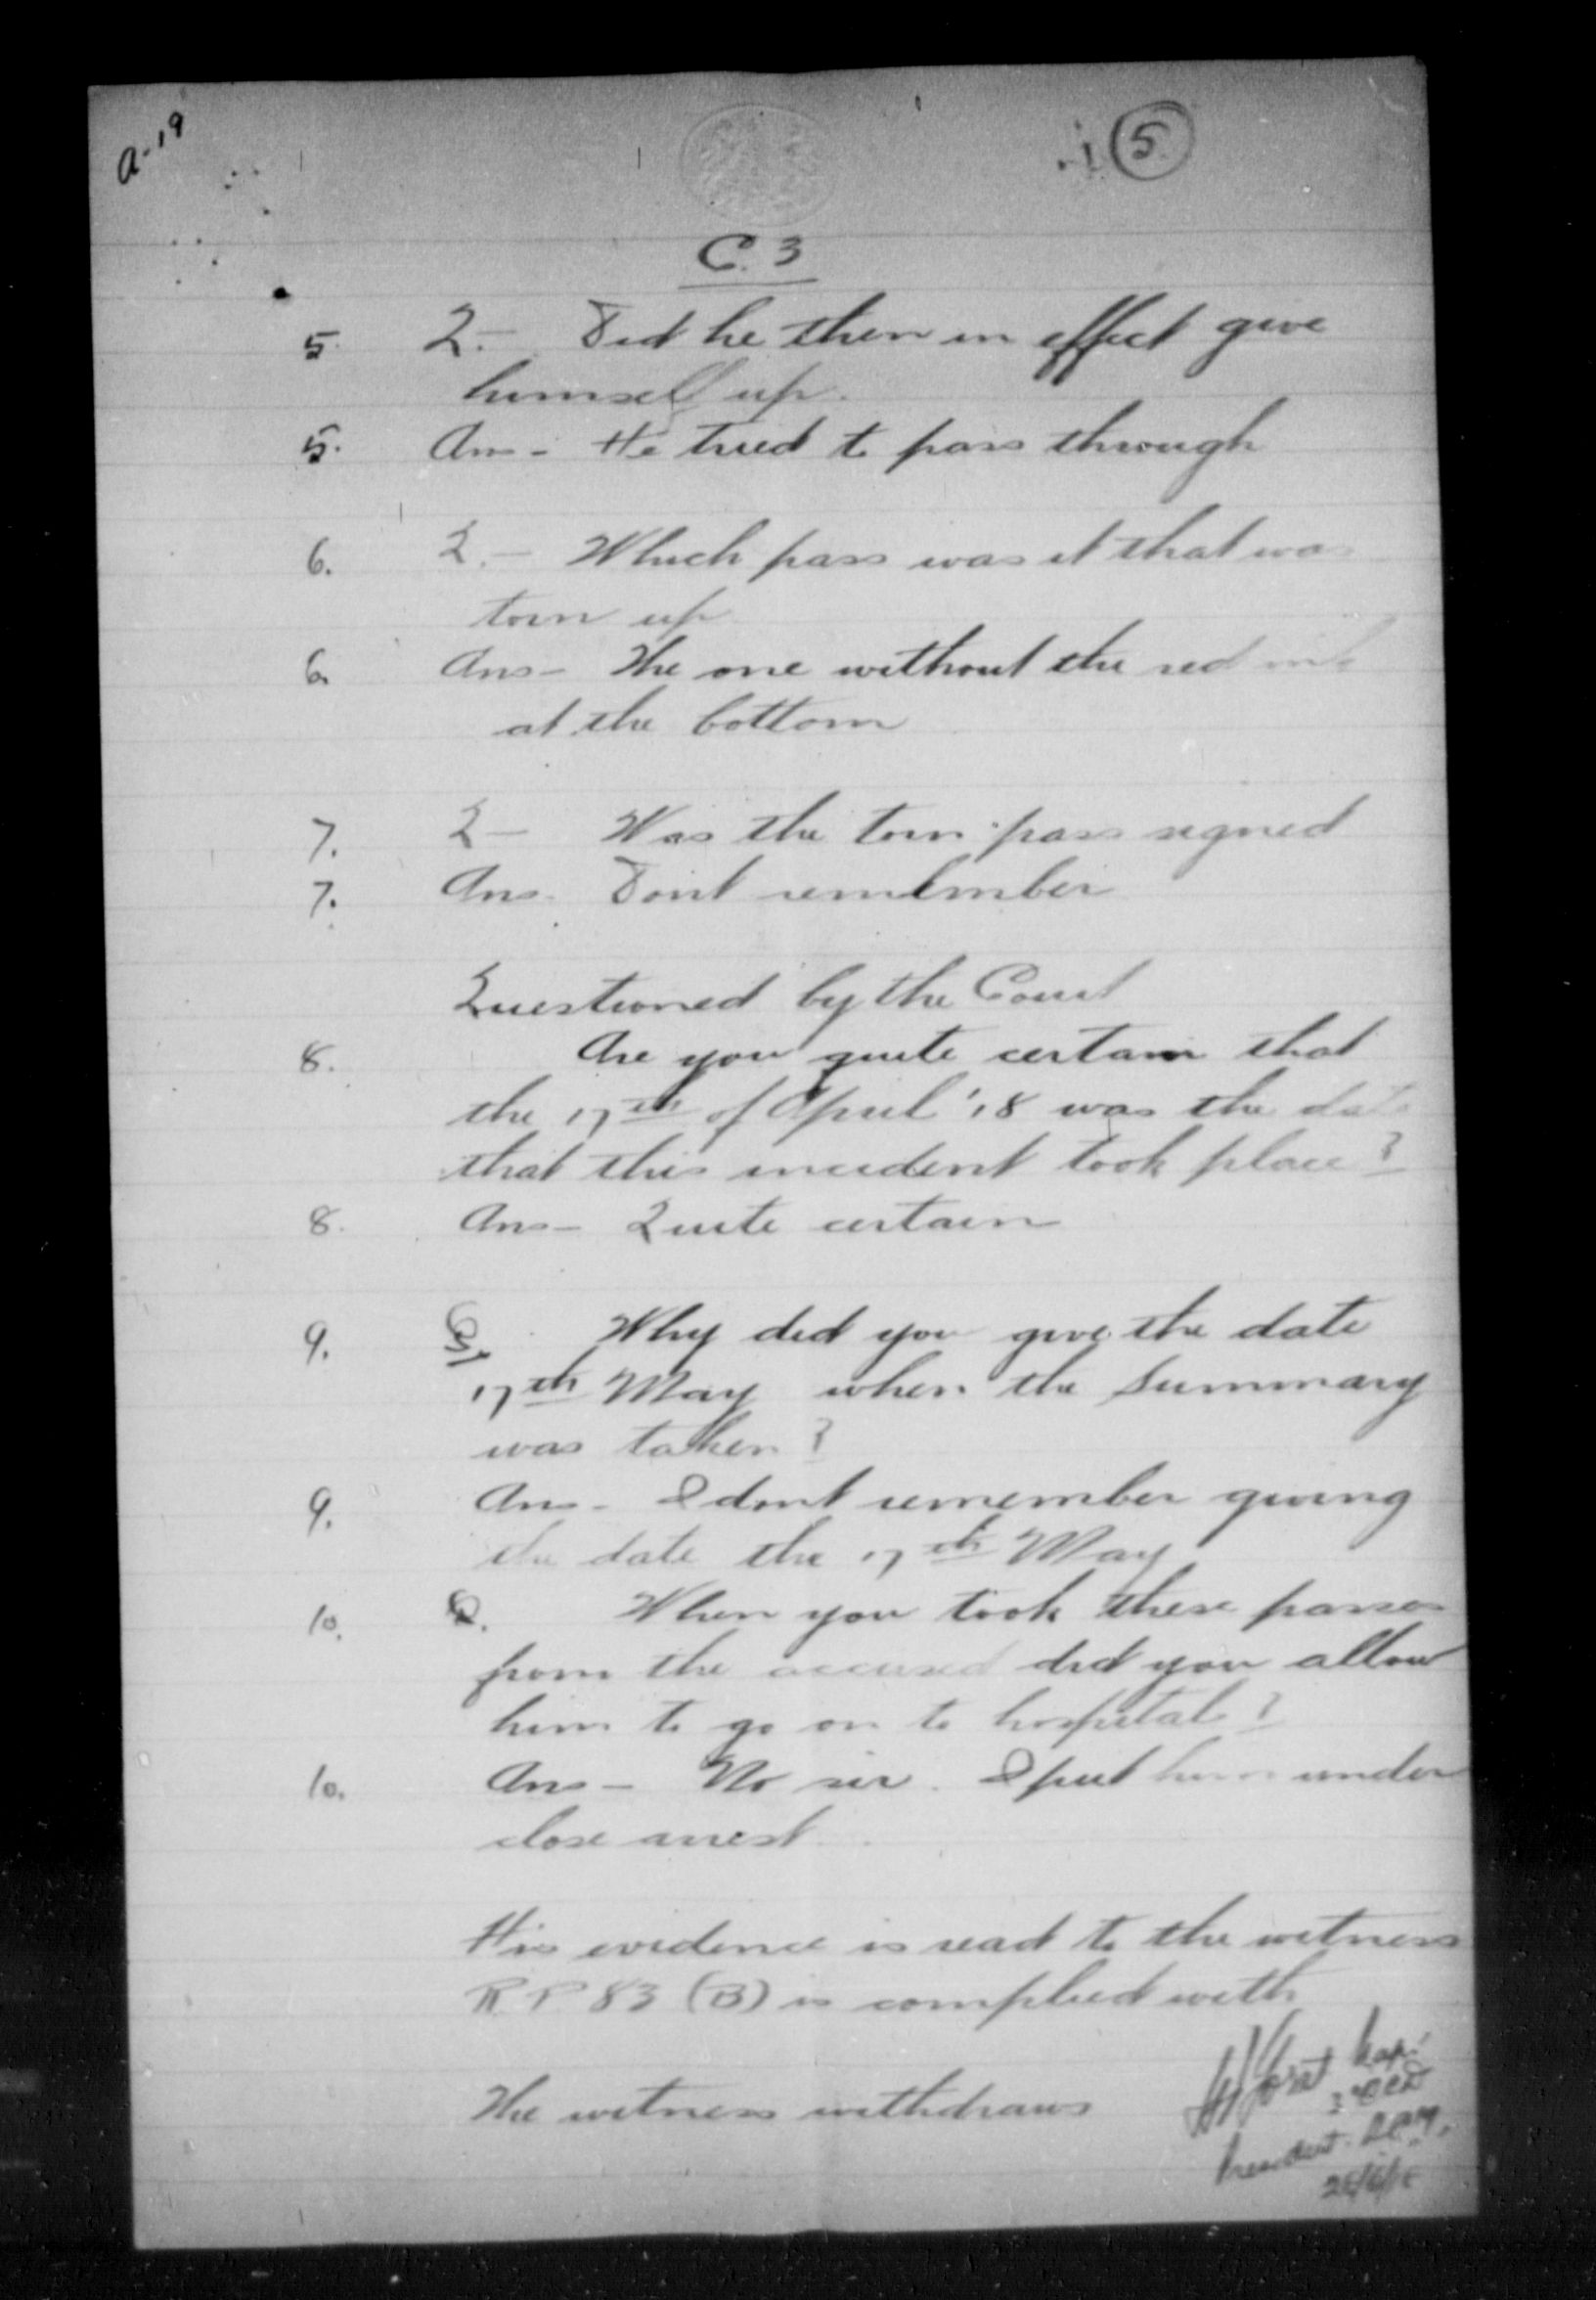 a-19
5
C. 3
5. Q.- Did he then in effect give
himself up.
5. Ans - He tried to pass through
6. Q.- Which pass was it that was
torn up
6. Ans - The one without the red ink
at the bottom
7. Q- Was the torn pass signed
7. Ans. Dont remember
Questioned by the Court
8. Are you quite certain that
the 17th of April '18 was the date
that this incident took place?
8. Ans - Quite certain
9. Q. Why did you give the date
17th May when the Summary
was taken?
9. Ans - I dont remember giving
the date the 17th May
10. Q. When you took these passes
from the accused did you allow
him to go on to hospital?
10. Ans - No sir. I put him under
close arrest
His evidence is read to the witness
R.P 83 (B) is complied with
The witness withdraws
President